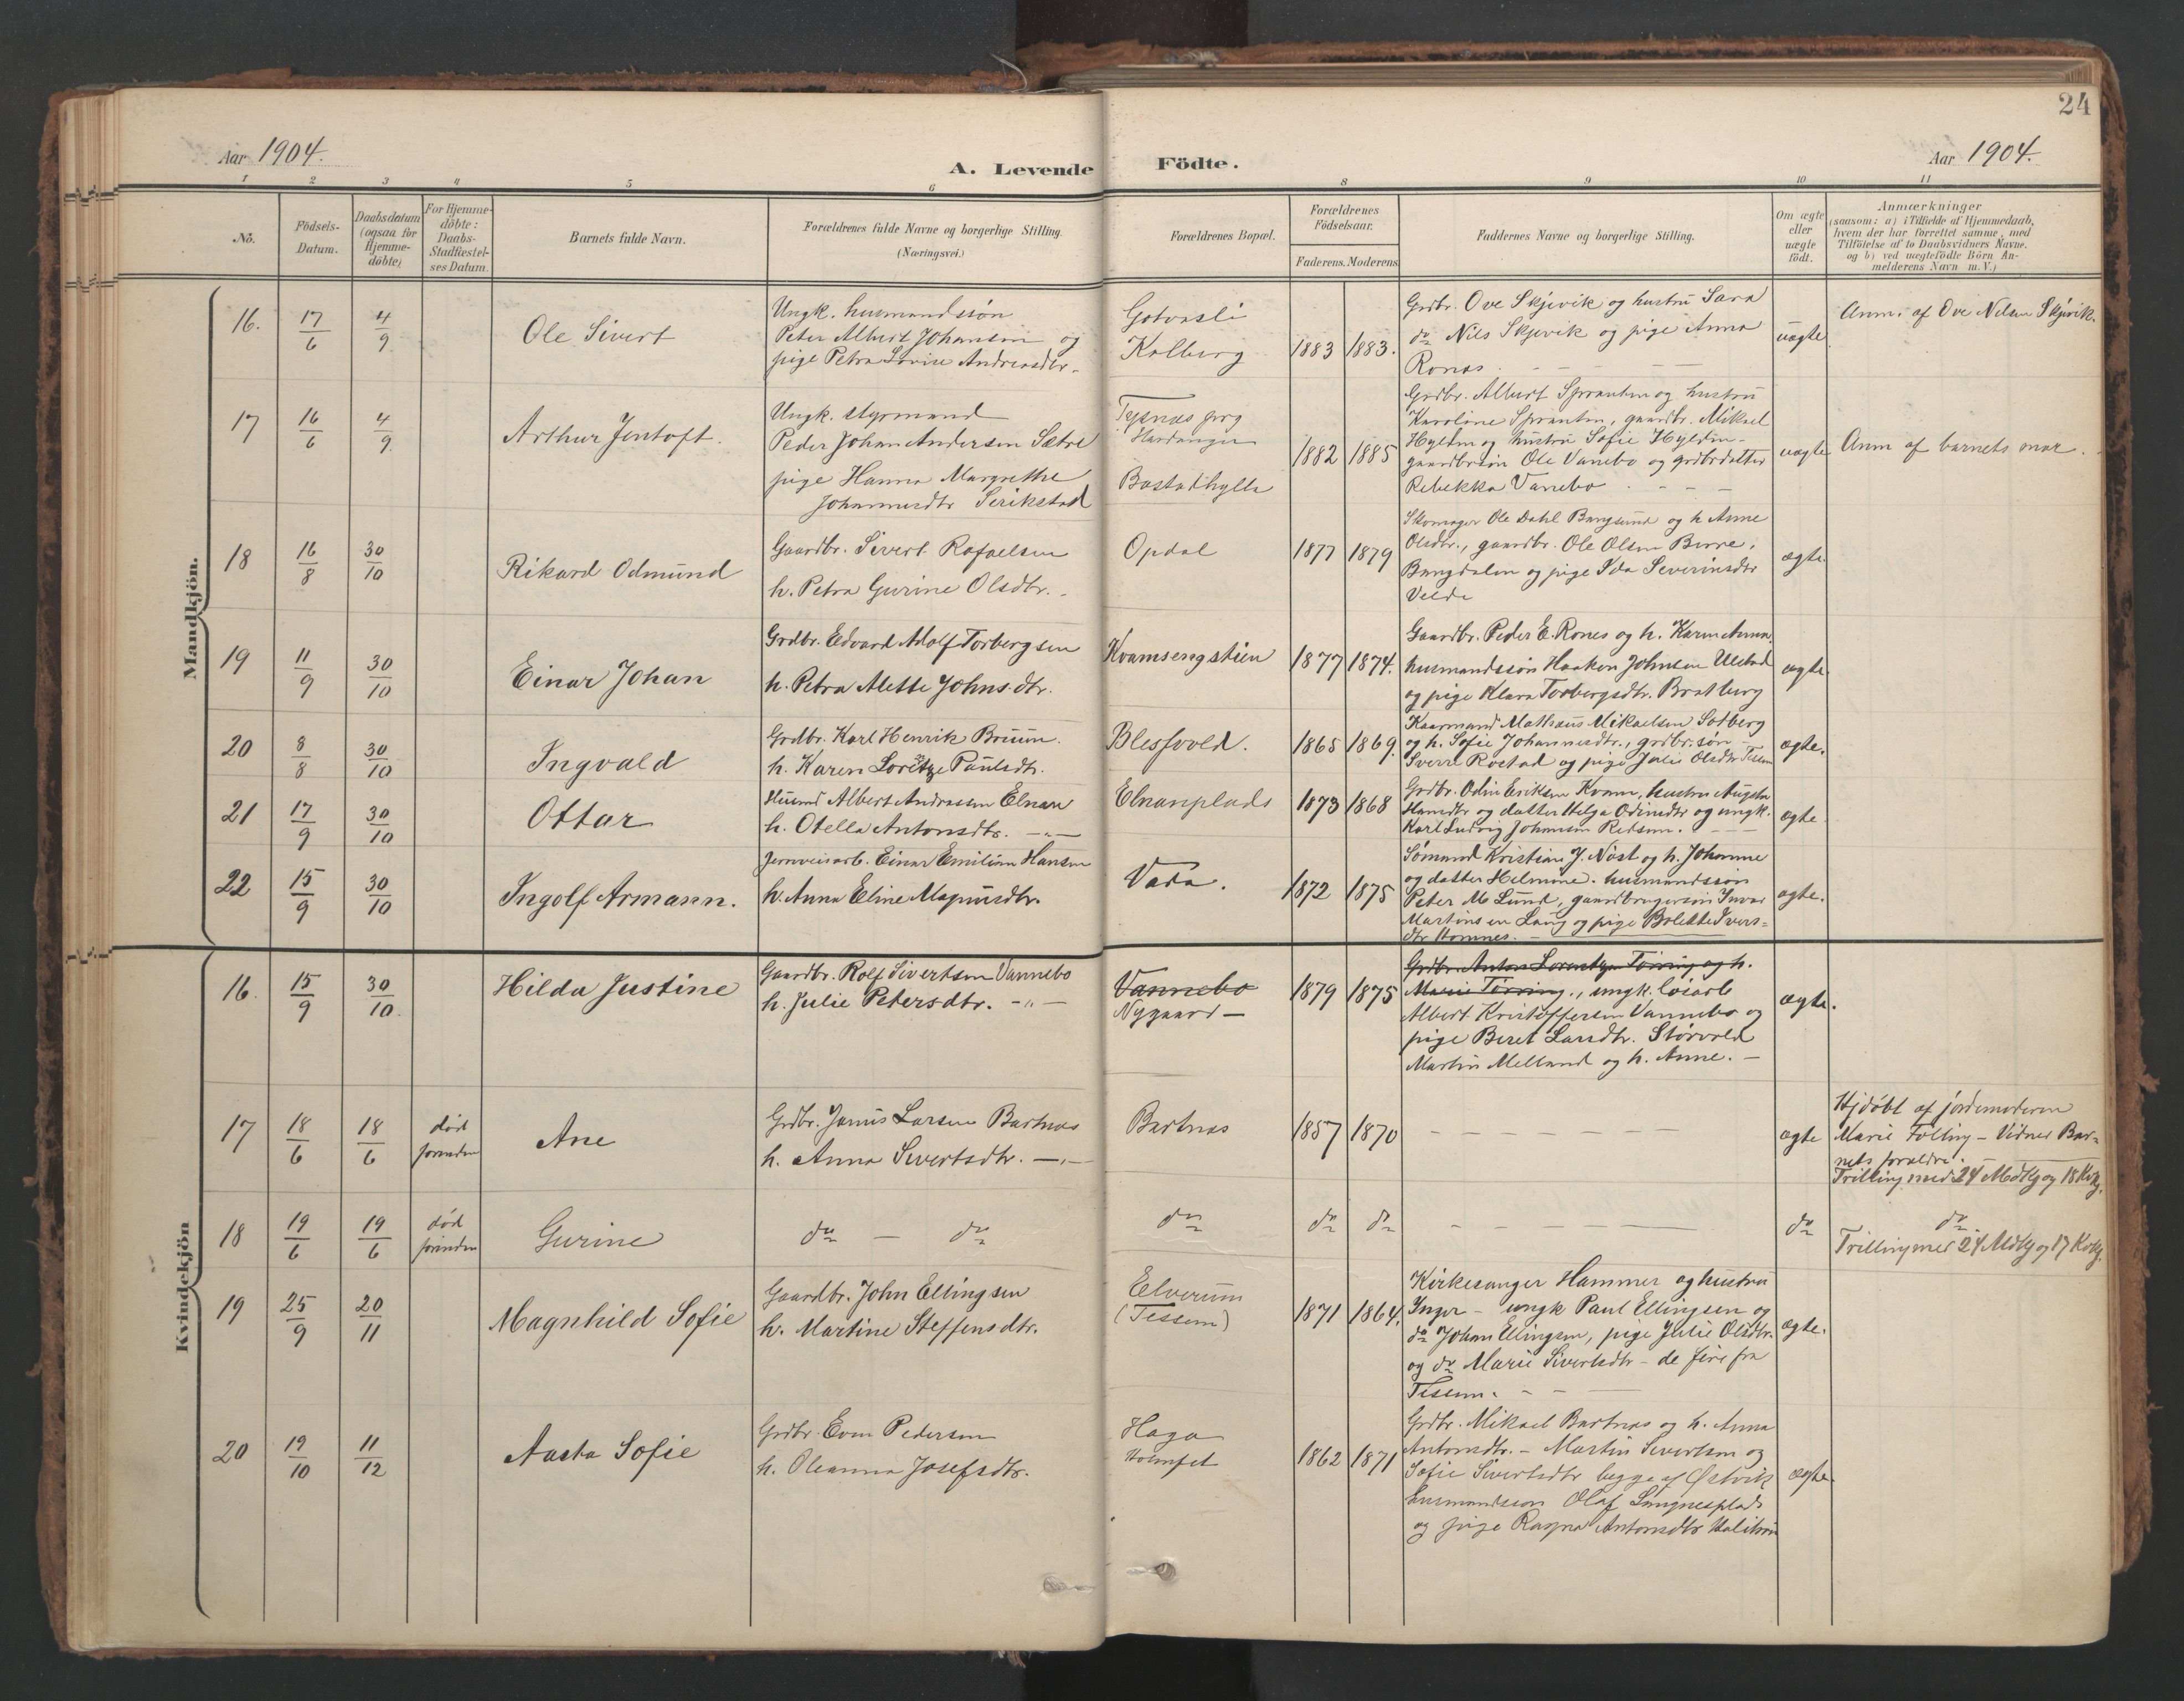 24
Aar 1904.
A. Levende Födte.
Aar 1904.
1 2 3 4 5 6 8 9 10 11
No.
Födsels-
Datum.
Daabsdatum
(ogsaa for
Hjemme-
döbte)
For Hjemme-
döbte:
Daabs-
Stadfæstel-
ses Datum.
Barnets fulde Navn.
Forældrenes fulde Navne og borgerlige Stilling.
(Næringsvei.)
Forældrenes Bopæl.
Forældrenes
Födselsaar.
Faderens. Moderens.
Faddernes Navne og borgerlige Stilling.
Om ægte
eller
uægte
födt.
Anmærkninger
(saasom: a) i Tilfælde af Hjemmedaab,
hvem der har forrettet samme, med
Tilföielse af to Daabsvidners Navne.
og b) ved uægtefödte Börn An-
melderens Navn m.V.)
Mandkjön.
16. 17/6 4/9 Ole Sivert
Ungk. husmandssøn
Peter Albert Johansen og
pige Petra Lovise Andreasdtr.
Kolberg
1883 1883.
Grdbr. Ove Skjevik og hustru Sara
do Nils Skjevik og pige Anna
Ronæs.
uægte
Anm. af Ove Nilsen Skjevik.
17 16/6 4/9 Arthur Jentoft.
Ungk. styrmand
Peder Johan Andersen Sætre
pige Hanna Margrethe
Johannesdtr Serikstad
Tysnæs prg
Hardanger
Bastadhylla
1882 1885
Grdbr. Albert Spranten og hustru
Karoline Spranten, gaardbr. Mikael
Hylden og hustru Sofie Hylden -
gaardbrsøn Ole Vanebo og grdbrdatter
Rebekka Vanebo
uægte
Anm af barnets mor.
18 16/8 30/10 Rikard Odmund
Gaardbr. Sivert Rafaelsen
h. Petra Gurine Olsdtr.
Opdal
1877 1879
Skomager Ole Dahl Bangsund og h Anne
Olsdtr., gaardbr. Ole Olsen Burre,
Bangdalen og pige Ida Severinsdtr
Velde
ægte.
19 11/9 30/10 Einar Johan
Grdbr. Edvard Adolf Torbergsen
h. Petra Alette Johnsdtr.
Kvamsengstien
1877 1874.
Gaardbr. Peder E. Rones og h. Karen Anna,
husmandssøn Haakon Johnsen Ulstad
og pige Klara Torbergsdtr. Bratberg
ægte.
20 8/8 30/10 Ingvald
Grdbr. Karl Henrik Bruun.
h. Karen Loretze Paulsdtr.
Blessvold.
1865 1869.
Kaarmand Mathæus Mikaelsen Solberg
og h. Sofie Johannesdtr., grdbr.søn
Sverre Rostad og pige Julie Olsdtr Tessem
ægte.
21 17/9 30/10 Ottar
Husmd Albert Andreassen Elnan
h. Otella Antonsdtr. -"-
Elnanplads
1873 1868
Grdbr. Odin Eriksen Kvam, hustru Augusta
Hansdtr og datter Helga Odinsdtr og ungk.
Karl Ludvig Johansen Redsem.
ægte
22 15/9 30/10 Ingolf Armann.
Jernveisarb. Einar Emilian Hansen
h. Anna Eline Magnusdtr.
Vada.
1872 1875
Sømand Kristian J. Nøst og h. Johanne
og datter Helmine. husmandssøn
Peter M Lund, gaardbrugersøn Invar
Martinsen Laug og pige Bolette Ivers-
dtr Homnes.
ægte.
Kvindekjön
16. 15/9 30/10 Hilda Justine
Gaardbr. Rolf Sivertsen Vannebo
h. Julie Petersdtr. -"-
Vannebo
Nygaard -
1879 1875
Grdbr. Anton Lorentzen Tørring og h.
Marie Tørring., ungk. løsarb
Albert Kristoffersen Vannebo og
pige Beret Larsdtr. Størvold
Martin Melland og h. Anne. -
ægte.
17 18/6 18/6 død
forinden
Ane
Grdbr. Janus Larsen Bartnæs
h. Anna Sivertsdtr. -"-
Bartnæs
1857 1870
ægte
Hjdøbt af jordemoderen
Marie Følling - Vidner Bar-
nets forældre.
Trilling med 24 Mdkj og 18 Kvkj.
18 19/6 19/6 død
forinden
Gurine
do - do
do
do do
do
do
Trilling med 24 Mdkj og 17 Kvkj.
19 25/9 20/11 Magnhild Sofie
Gaardbr. John Ellingsen
h. Martine Steffensdtr.
Elverum
(Tessem)
1871 1864.
Kirkesanger Hammer og hustru
Inger - ungk Paul Ellingsen og
do Johan Ellingsen, pige Julie Olsdtr.
og do Marie Sivertsdtr - de fire fra
Tessem.
ægte.
20 19/10 11/12 Aasta Sofie
Grdbr. Even Pedersen
h. Oleanna Josefsdtr.
Haga
1862 1871
Grdbr. Mikael Bartnæs og h. Anna
Antonsdtr. - Martin Sivertsen og
Sofie Sivertsdtr begge af Østvik
husmandssøn Olaf Langnesplads
og pige Ragna Antonsdtr
ægte.